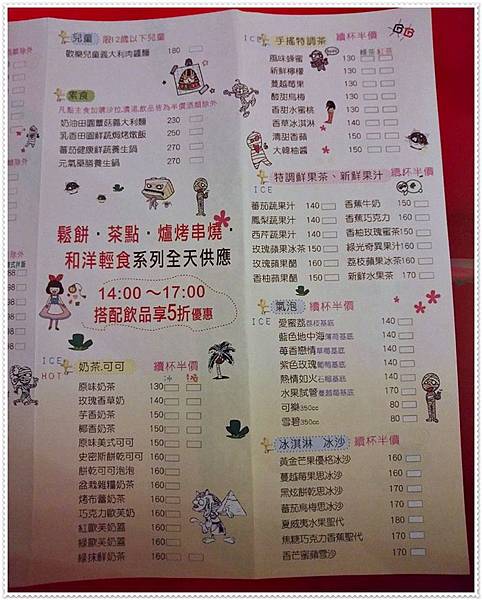 兒童 限12歲以下兒童
歡樂兒童義大利肉醬麵 180
素食
凡點主食加購沙拉,濃湯,飲品皆為半價酒類除外
奶油田園蘑菇義大利麵 230
乳香田園鮮蔬焗烤燉飯 250
蕃茄健康鮮蔬養生鍋 270
元氣藥膳養生鍋 270
鬆餅・茶點・爐烤串燒・
和洋輕食系列全天供應
14:00～17:00
搭配飲品享5折優惠
ICE
HOT
奶茶.可可 續杯半價
原味奶茶 130
玫瑰香草奶 140
芋香奶茶 150
椰香奶茶 150
原味美式可可 150
史密斯餅乾可可 160
餅乾可可泡泡 160
盆栽雜糧奶茶 160
烤布蕾奶茶 160
巧克力歐芙奶 160
紅歐芙奶蓋 160
綠歐芙奶蓋 160
綠抹鮮奶茶 160
ICE 手搖特調茶 續杯半價
綠茶 紅茶
風味蜂蜜 130
新鮮檸檬 130
蔓越莓果 130
酸甜烏梅 130
香甜水蜜桃 130
香草冰淇淋 140
清甜香蘋 150
大韓柚醬 150
特調鮮果茶、新鮮果汁 續杯半價
ICE
蕃茄蔬果汁 140 香蕉牛奶 150
鳳梨蔬果汁 140 香蕉巧克力 160
西芹蔬果汁 140 香柚玫瑰蜜茶 150
玫瑰蘋果冰茶 150 綠光奇異果汁 160
玫瑰蘋果醋 140 荔枝蘋果冰茶 150
香柚蘋果醋 150 新鮮水果茶 170
氣泡 續杯半價
ICE
愛蜜荔 荔枝基底 140
藍色地中海 薄荷基底 140
莓香戀情 草莓基底 140
紫色玫瑰 葡萄基底 140
熱情如火 石榴基底 140
水果試管 蔓越莓基底 160
可樂350cc 80
雪碧350cc 80
冰淇淋 冰沙 續杯半價
黃金芒果優格冰沙 160
蔓越莓果思冰沙 160
黑炫餅乾思冰沙 170
蕃茄烏梅思冰沙 170
夏威夷水果聖代 160
焦糖巧克力香蕉聖代 160
香芒蜜蘋雪沙 170